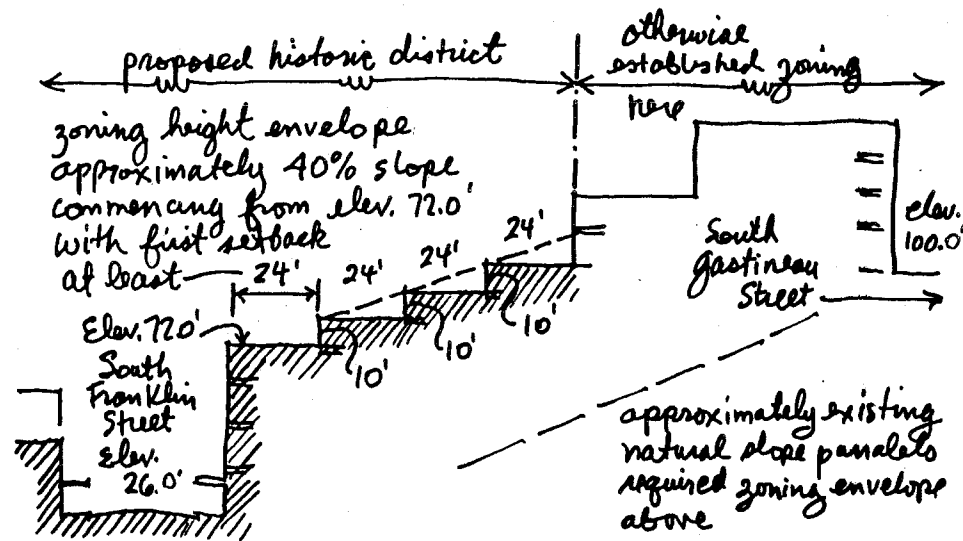 proposed historic district
otherwise
established zoning
here
zoning height envelope
approximately 40% slope
commencing from elev. 72.0'
with first setback
at least
24'
24'
24'
24'
10'
10'
10'
Elev. 72.0'
South
Franklin
Street
Elev.
26.0'
South
Gastineau
Street
elev.
100.0'
approximately existing
natural slope parralels
required zoning envelope
above